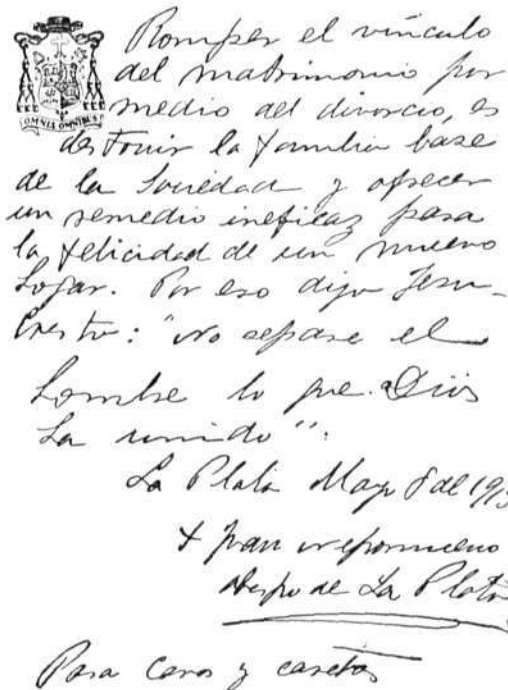 OMNIA OMNIBUS
Romper el vinculo
del matrimonio por
medio del divorcio, es
destruir la familia base
de la Sociedad y ofrecer
un remedio ineficaz para
la felicidad de un nuevo
hogar. Por eso dijo Jesu-
cristo: "No separe el
hombre lo que Dios
ha unido".
La Plata Mayo 8 de 191
+ Juan Nepomuceno
Obispo de La Plata
Para Caras y caretas